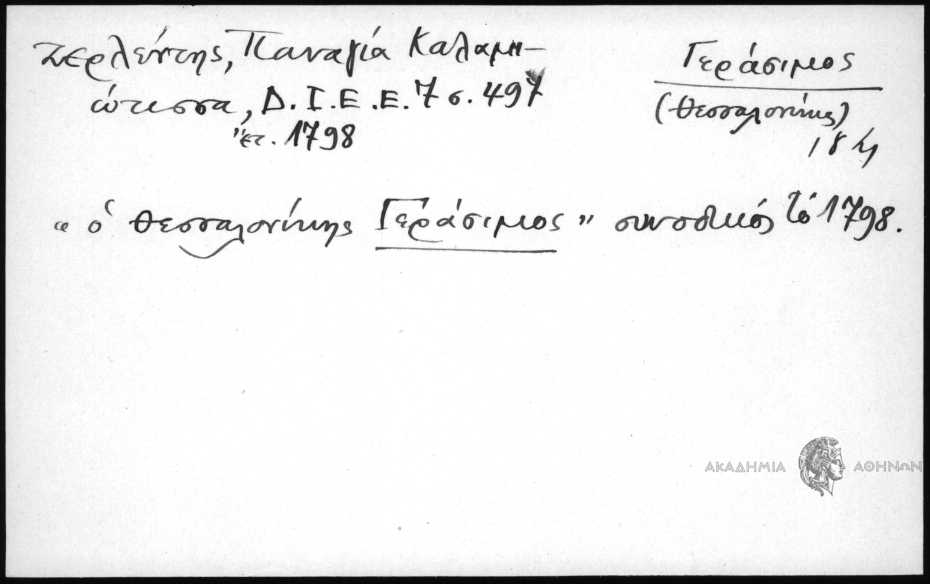 Ζερλέντης, Παναγία Καλαμι-
ώτισσα, Δ.Ι.Ε.Ε. 7 σ. 497
ἔτ. 1798
Γεράσιμος
(Θεσσαλονίκης)
"ὁ Θεσσαλονίκης Γεράσιμος" συνοδικός τό 1798.
ΑΚΑΔΗΜΙΑ ΑΘΗΝΩΝ